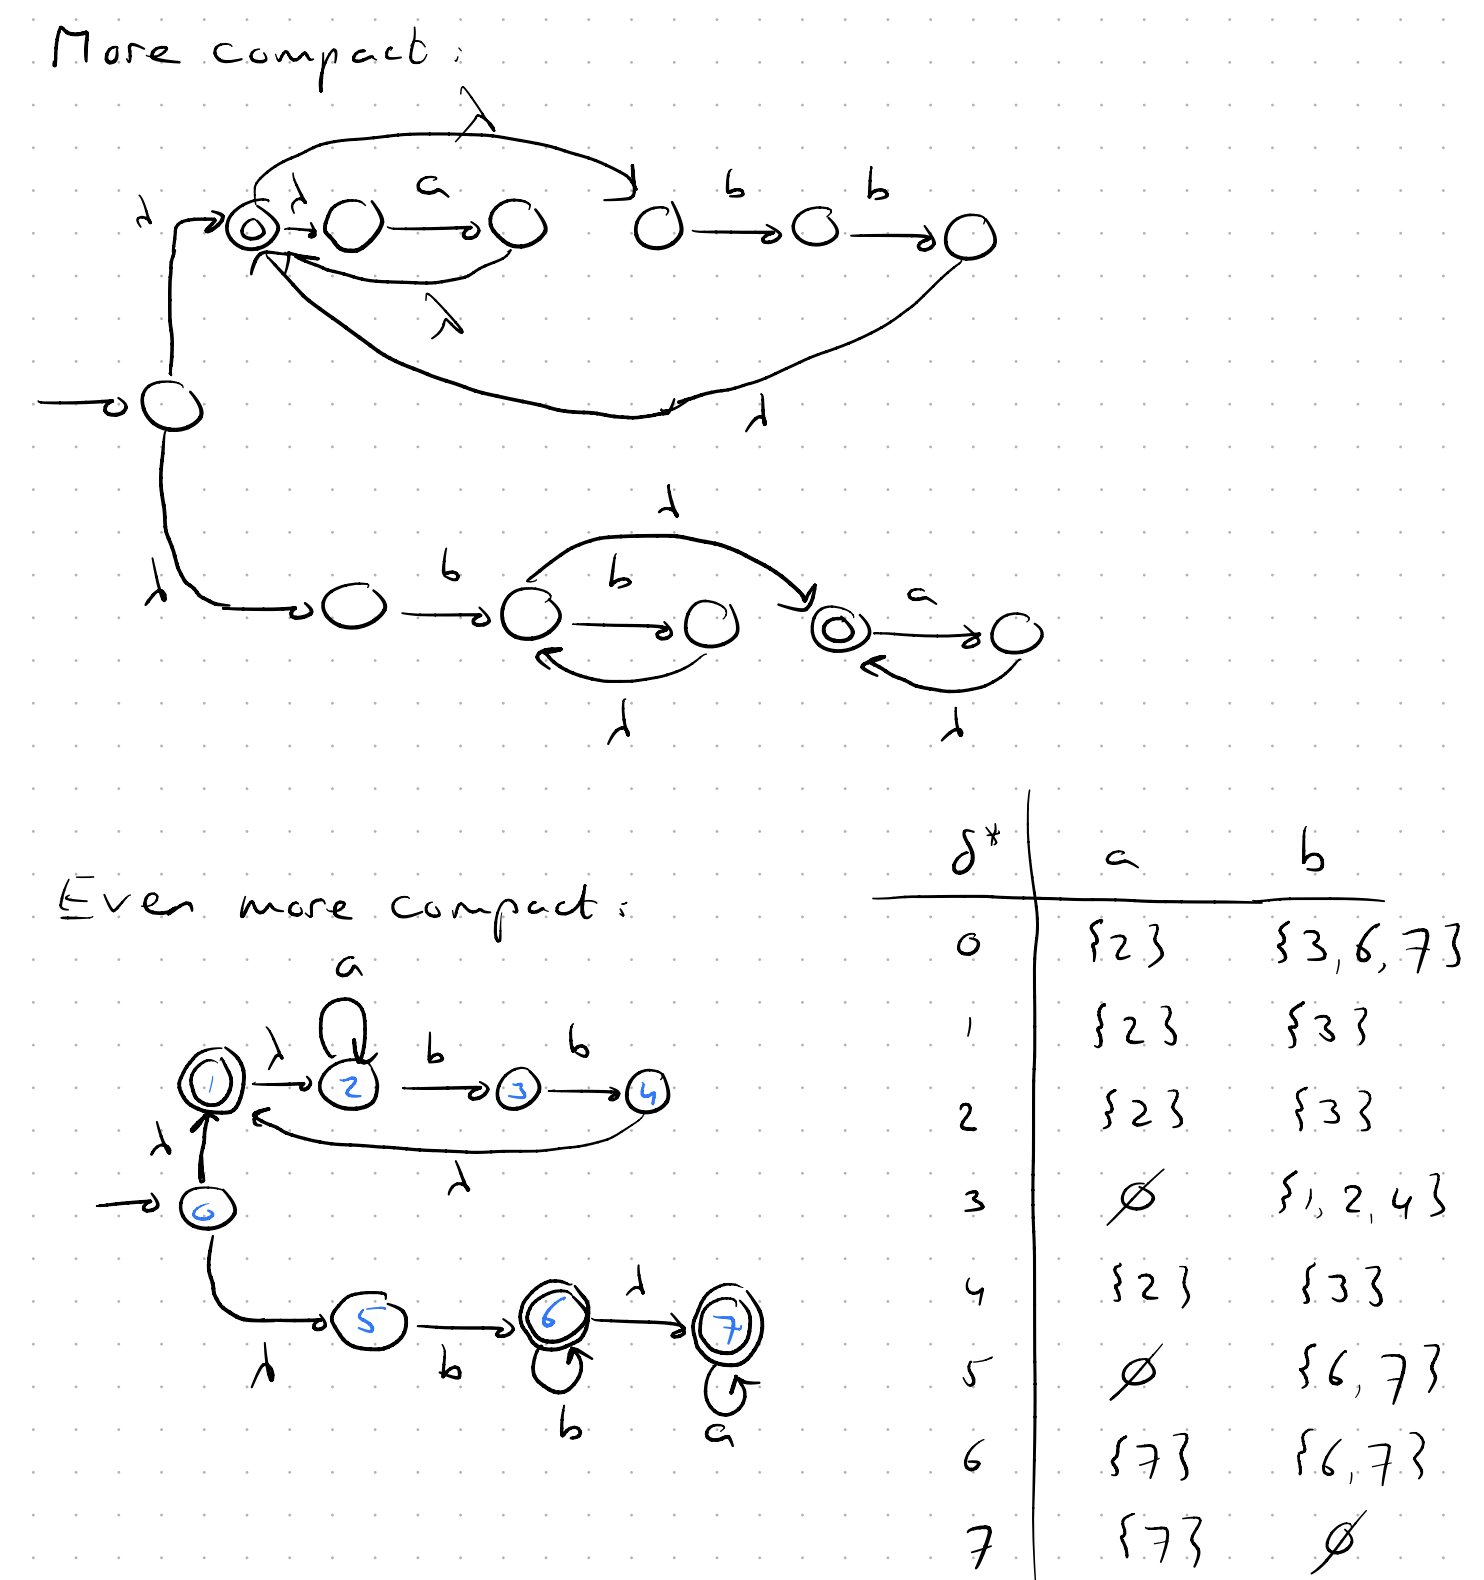 More compact:
λ
λ λ a b b
λ
λ
λ
λ b b a
λ λ
Even more compact:
a
λ b b
1 2 3 4
λ λ
0
λ
5 6 7
λ b
b a
δ* a b
0 {2} {3,6,7}
1 {2} {3}
2 {2} {3}
3 ∅ {1,2,4}
4 {2} {3}
5 ∅ {6,7}
6 {7} {6,7}
7 {7} ∅